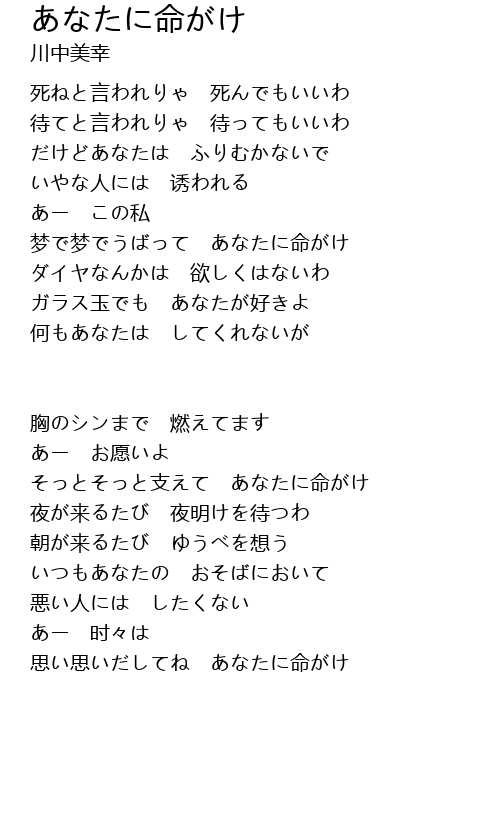 あなたに命がけ
川中美幸
死ねと言われりゃ　死んでもいいわ
待てと言われりゃ　待ってもいいわ
だけどあなたは　ふりむかないで
いやな人には　诱われる
あー　この私
梦で梦でうばって　あなたに命がけ
ダイヤなんかは　欲しくはないわ
ガラス玉でも　あなたが好きよ
何もあなたは　してくれないが
胸のシンまで　燃えてます
あー　お愿いよ
そっとそっと支えて　あなたに命がけ
夜が来るたび　夜明けを待つわ
朝が来るたび　ゆうべを想う
いつもあなたの　おそばにおいて
悪い人には　したくない
あー　时々は
思い思いだしてね　あなたに命がけ